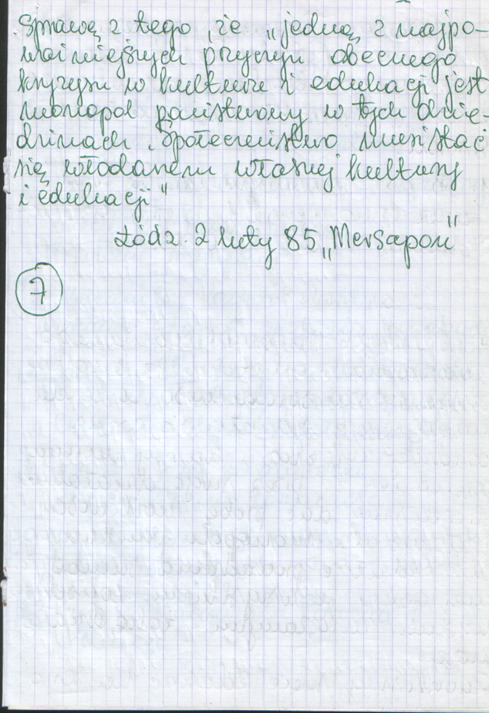 sprawę z tego, że „jedną z najpo-
ważniejszych przyczyn obecnego
kryzysu w kulturze i edukacji jest
monopol państwowy w tych dzie-
dzinach. Społeczeństwo musi stać
się włodarzem własnej kultury
i edukacji"
Łódź. 2 luty 85 „Mersapon"
7